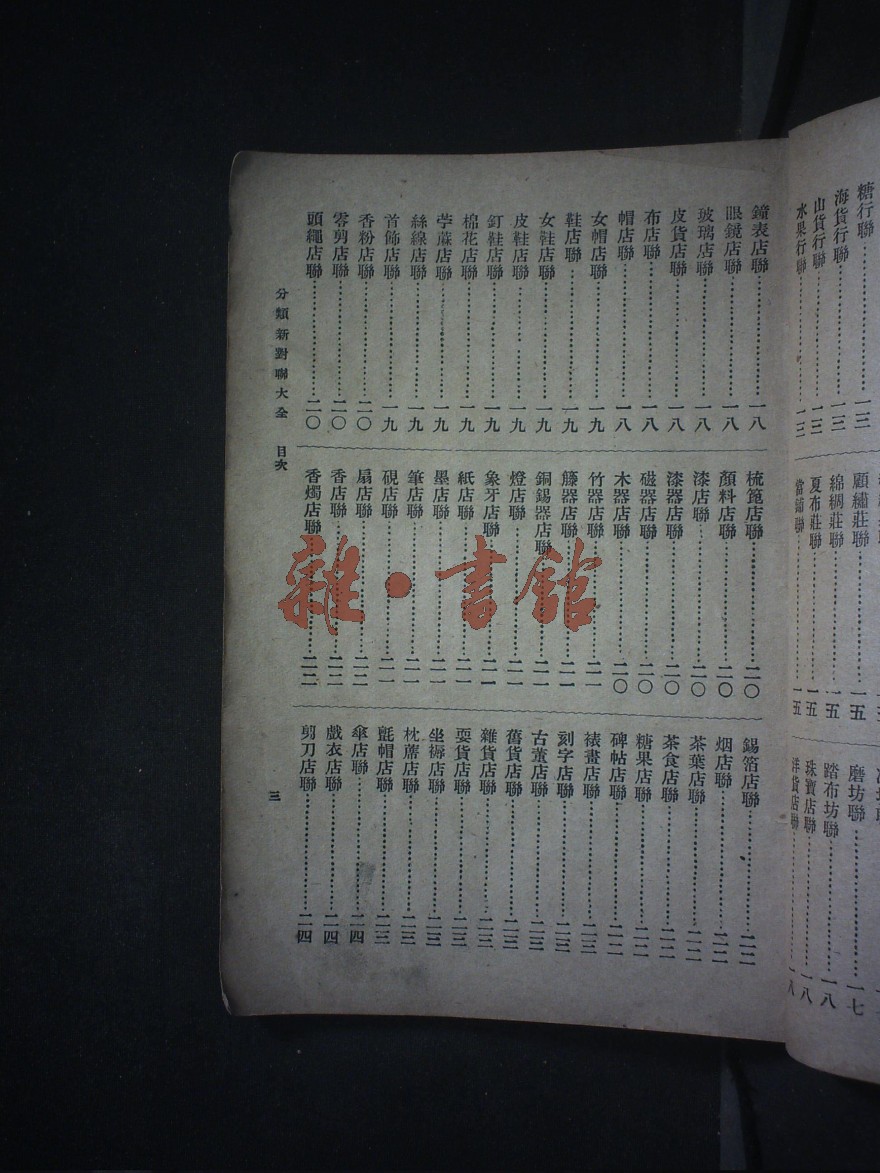 糖行聯⋯⋯一三
海貨行聯⋯⋯一三
山貨行聯⋯⋯一三
水果行聯⋯⋯一三
顧繡莊聯⋯⋯一五
綿綢莊聯⋯⋯一五
夏布莊聯⋯⋯一五
當鋪聯⋯⋯一五
磨坊聯⋯⋯一七
踏布坊聯⋯⋯一八
珠寶店聯⋯⋯一八
洋貨店聯⋯⋯一八
鐘表店聯⋯⋯一八
眼鏡店聯⋯⋯一八
玻璃店聯⋯⋯一八
皮貨店聯⋯⋯一八
布店聯⋯⋯一八
帽店聯⋯⋯一八
女帽店聯⋯⋯一九
鞋店聯⋯⋯一九
女鞋店聯⋯⋯一九
皮鞋店聯⋯⋯一九
釘鞋店聯⋯⋯一九
棉花店聯⋯⋯一九
苧蔴店聯⋯⋯一九
絲線店聯⋯⋯一九
首飾店聯⋯⋯一九
香粉店聯⋯⋯二〇
零剪店聯⋯⋯二〇
頭繩店聯⋯⋯二〇
梳篦店聯⋯⋯二〇
顏料店聯⋯⋯二〇
漆店聯⋯⋯二〇
漆器店聯⋯⋯二〇
磁器店聯⋯⋯二〇
木器店聯⋯⋯二〇
竹器店聯⋯⋯二一
籐器店聯⋯⋯二一
銅錫器店聯⋯⋯二一
燈店聯⋯⋯二一
象牙店聯⋯⋯二一
紙店聯⋯⋯二一
墨店聯⋯⋯二一
筆店聯⋯⋯二一
硯店聯⋯⋯二一
扇店聯⋯⋯二二
香店聯⋯⋯二二
香燭店聯⋯⋯二二
錫箔店聯⋯⋯二二
烟店聯⋯⋯二二
茶葉店聯⋯⋯二二
茶食店聯⋯⋯二二
糖果店聯⋯⋯二二
碑帖店聯⋯⋯二二
裱畫店聯⋯⋯二三
刻字店聯⋯⋯二三
古董店聯⋯⋯二三
舊貨店聯⋯⋯二三
雜貨店聯⋯⋯二三
耍貨店聯⋯⋯二三
坐褥店聯⋯⋯二三
枕蓆店聯⋯⋯二三
氈帽店聯⋯⋯二三
傘店聯⋯⋯二四
戲衣店聯⋯⋯二四
剪刀店聯⋯⋯二四
分類新對聯大全 目次
三
雜·書館